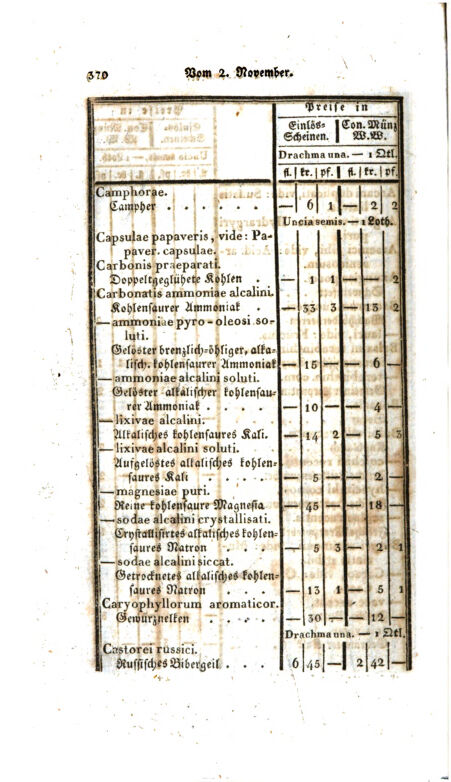 370 Vom 2. November.
Preise in
Einlös- Con. Münz
Scheinen. W. W.
Drachma una. — 1 Qtl.
fl. kr. pf. fl. kr. pf.
Camphorae.
Campher . . . . . . . — 6 1 — 2 2
Uncia semis. — 1 Loth.
Capsulae papaveris, vide: Pa-
paver. capsulae.
Carbonis praeparati.
Doppeltgeglühete Kohlen . — 1 1 — — 2
Carbonatis ammoniae alcalini.
Kohlensaurer Ammoniak . — 33 3 — 13 2
— ammoniae pyro-oleosi so-
luti.
Gelöster brenzlich-öhliger, alka-
lisch. kohlensaurer Ammoniak — 15 — — 6 —
— ammoniae alcalini soluti.
Gelöster alkalischer kohlensau-
rer Ammoniak . . . . — 10 — — 4 —
— lixivae alcalini.
Alkalisches kohlensaures Kali. — 14 2 — 5 3
— lixivae alcalini soluti.
Aufgelöstes alkalisches kohlen-
saures Kali . . . . — 5 — — 2 —
— magnesiae puri.
Reine kohlensaure Magnesia — 45 — — 18 —
— sodae alcalini crystallisati.
Crystallisirtes alkalisches kohlen-
saures Natron . . . . — 5 3 — 2 1
— sodae alcalini siccat.
Getrocknetes alkalisches kohlen-
saures Natron . . . . — 13 1 — 5 1
Caryophyllorum aromaticor.
Gewürznelken . . . . — 30 — — 12 —
Drachma una. — 1 Qtl.
Castorei russici.
Russisches Bibergeil . . . 6 45 — 2 42 —